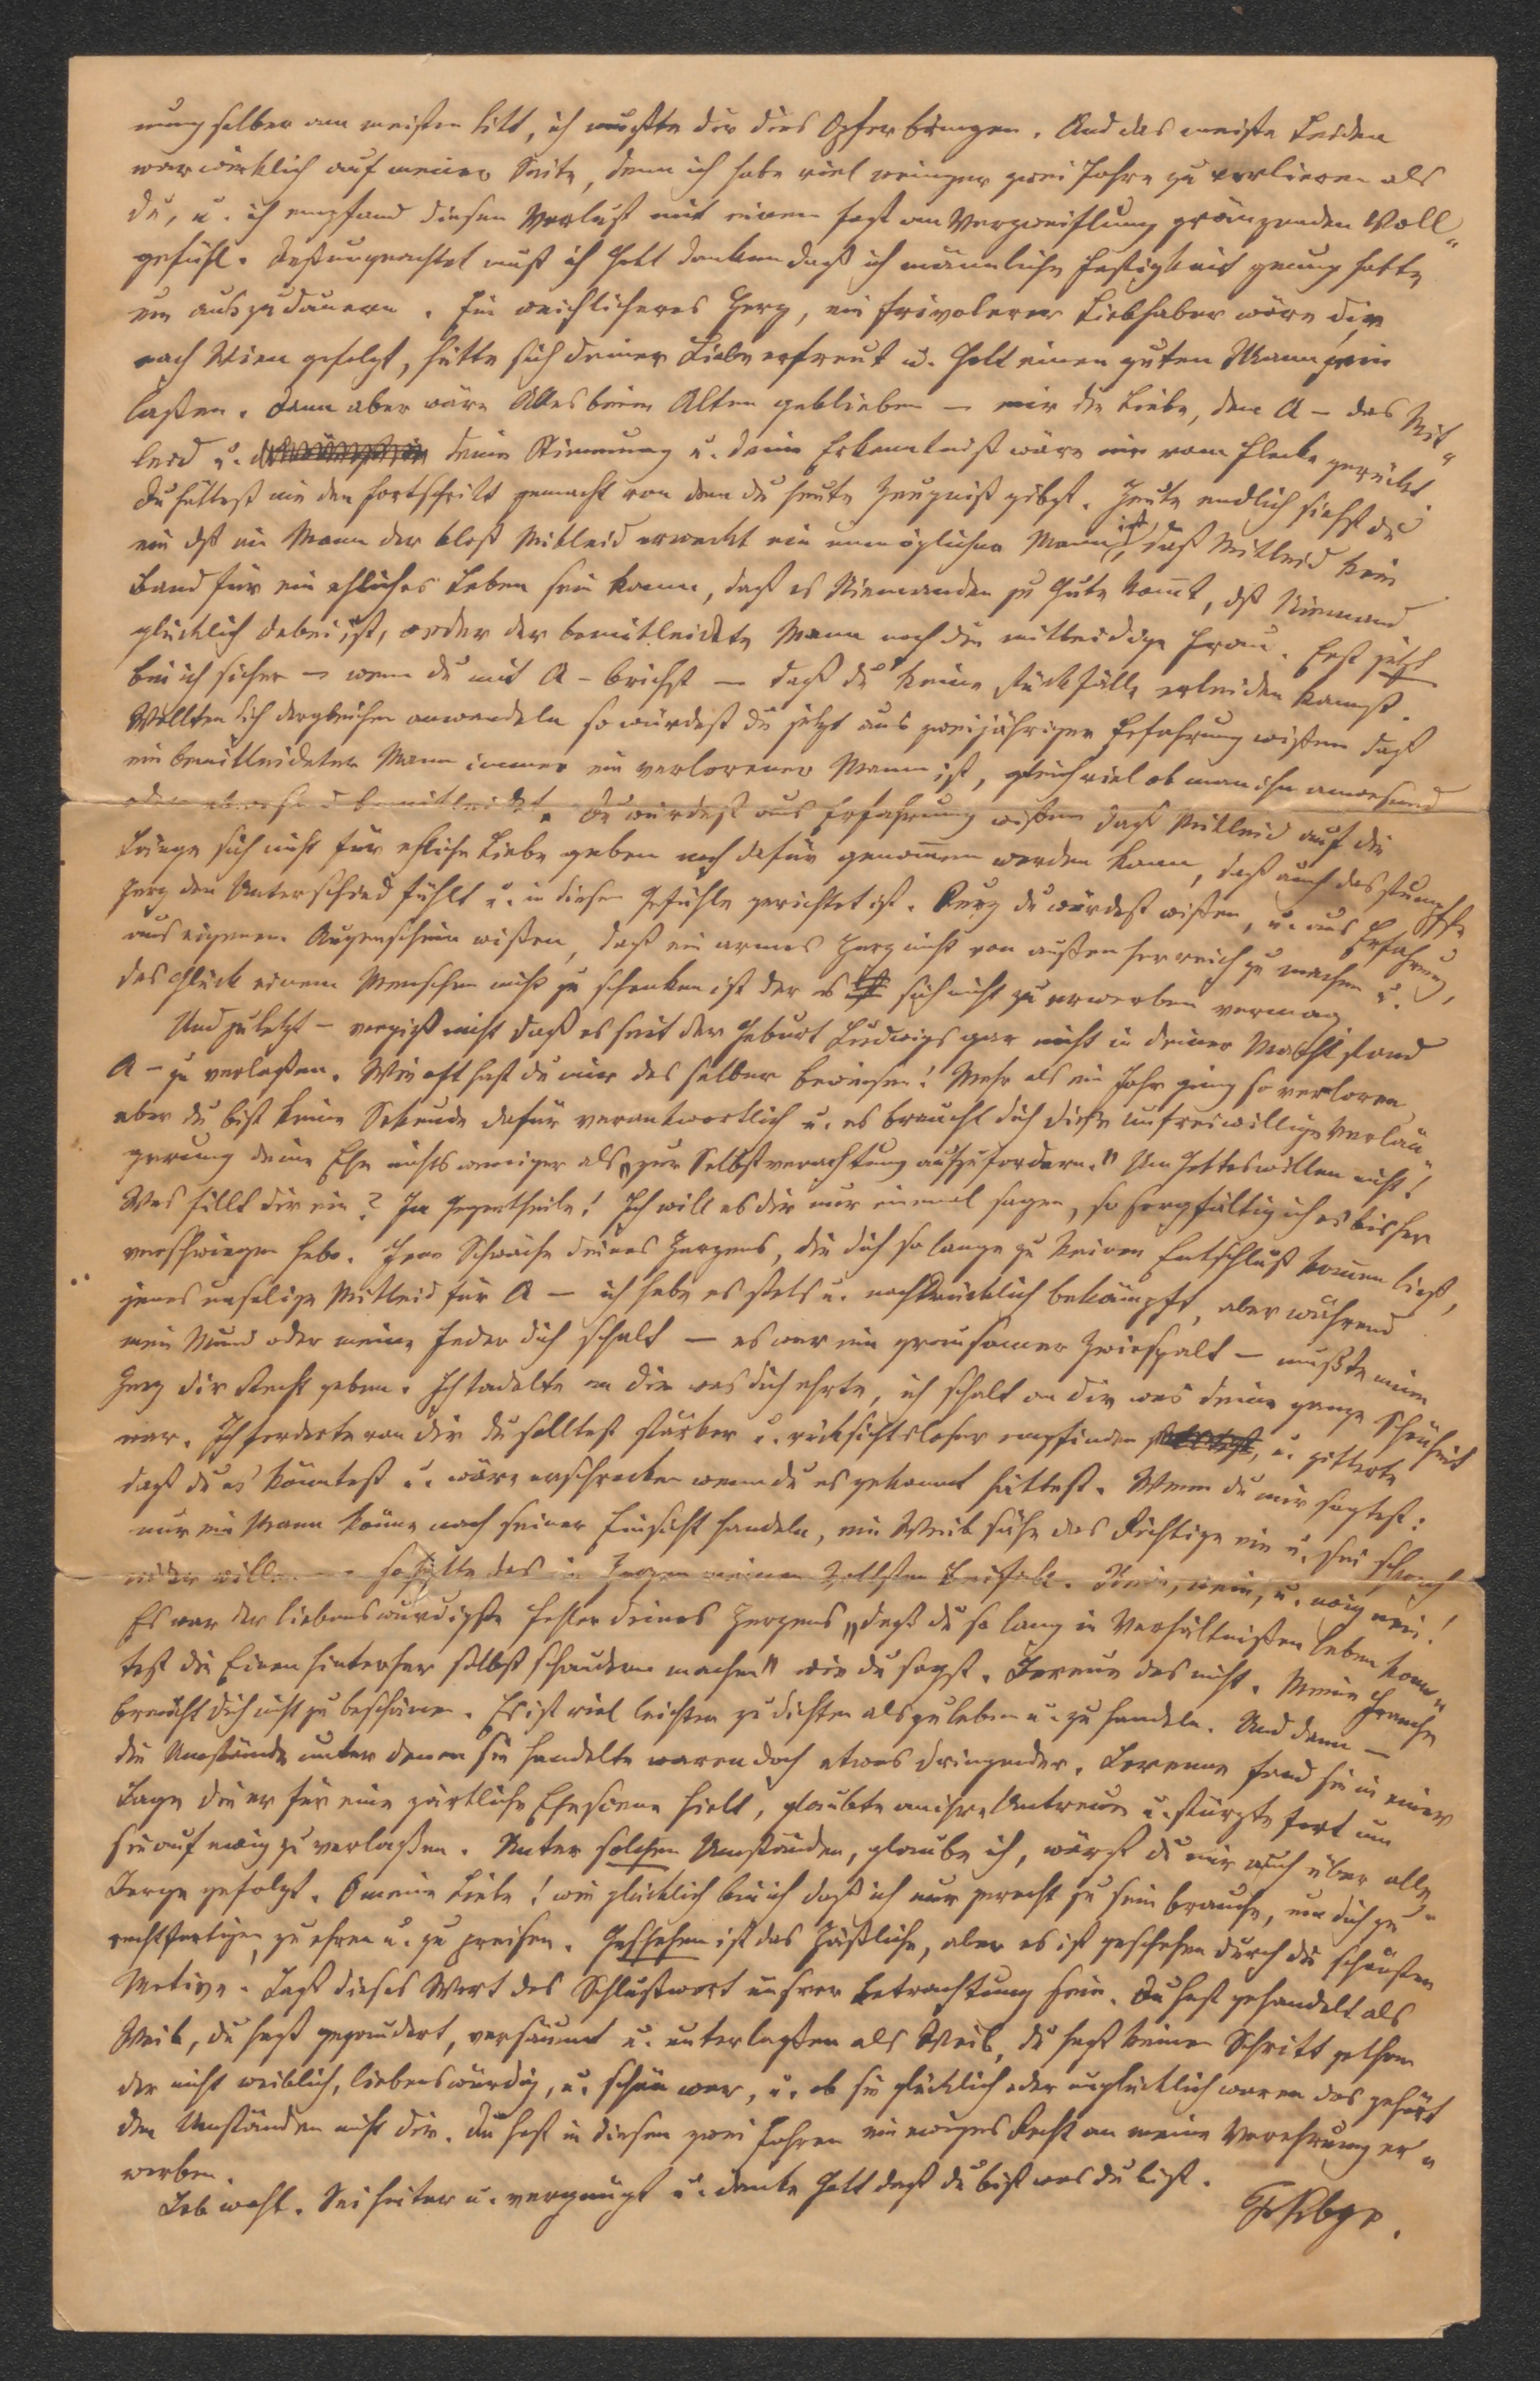 nung selber am meisten litt, ich mußte dir dies Opfer bringen. Und das meiste Leiden
war wirklich auf meiner Seite, denn ich habe viel weniger zwei Jahre zu verlieren als
du, u. ich empfand diesen Verlust mit einem fast an Verzweiflung gränzenden Voll-
gefühl. Deßungeachtet muß ich Gott danken daß ich männliche Festigkeit genug hatte
um auszudauern. Ein weichlicheres Herz, ein frivolerer Liebhaber wäre dir
nach Wien gefolgt, hätte sich deiner Liebe erfreut u. Gott einen guten Mann sein
laßen. Dann aber wäre Alles beim Alten geblieben – mir die Liebe, dem A – das Mit-
leid u. deine Stimmung u. deine Erkenntniß wäre nie vom Flecke gerückt.
Du hättest nie den Fortschritt gemacht von dem du heute Zeugniß gibst. Heute endlich siehst du
ein dß ein Mann der bloß Mitleid erweckt ein unmöglicher Mann ist, daß Mitleid kein
Band für ein ehliches Leben sein kann, daß es Niemanden zu Gute kommt, dß Niemand
glücklich dabei ist, weder der bemitleidete Mann noch die mitleidige Frau. Erst jetzt
bin ich sicher – wenn du mit A – brichst – daß du keine Rückfälle erleiden kannst.
Wollten dich dergleichen anwandeln so würdest du jetzt aus zweijähriger Erfahrung wißen daß
ein bemitleideter Mann immer ein verlorener Mann ist, gleichviel ob man ihn anwesend
oder abwesend bemitleidet. Du würdest aus Erfahrung wißen daß Mitleid auf die
Länge sich nicht für ehliche Liebe geben noch dafür genommen werden kann, daß auch das stumpfste
Herz den Unterschied fühlt u. in diesem Gefühle gerichtet ist. Kurz du würdest wißen, u. aus Erfahrung,
aus eigenem Augenschein wißen, daß ein armes Herz nicht von außen her reich zu machen u.
das Glück einem Menschen nicht zu schenken ist der es sich nicht zu erwerben vermag.
Und zuletzt – vergiß nicht daß es seit der Geburt Ludwigs gar nicht in deiner Macht stand
A – zu verlaßen. Wie oft hast du mir das selber bewiesen! Mehr als ein Jahr ging so verloren
aber du bist keine Sekunde dafür verantwortlich u. es braucht dich diese unfreiwillige Verlän-
gerung deiner Ehe nichts weniger als „zur Selbstverachtung aufzufordern." Um Gotteswillen nicht!
Was fällt dir ein? Im Gegentheile! Ich will es dir nur einmal sagen, so sorgfältig ich es bisher
verschwiegen habe. Jene Schwäche deines Herzens, die dich so lange zu keinem Entschluß kommen ließ,
jenes unselige Mitleid für A – ich habe es stets u. nachdrücklich bekämpft, aber während
mein Mund oder meine Feder dich schalt – es war ein grausamer Zwiespalt – mußte mein
Herz dir Recht geben. Ich tadelte an dir was dich ehrte, ich schalt an dir was deine ganze Schönheit
war. Ich forderte von dir du solltest stärker u. rücksichtsloser empfinden, u. zitterte
daß du es könntest u. wäre erschrocken wenn du es gekonnt hättest. Wenn du mir sagtest:
nur ein Mann könne nach seiner Einsicht handeln, ein Weib sähe das Richtige ein u. sei schwach
so hatte das im Herzen meinen vollsten Beifall. Nein, nein, u. ewig nein!
Es war der liebenswürdigste Fehler deines Herzens „daß du so lang in Verhältnißen leben konn-
test die Einen hinterher selbst schaudern machen" wie du sagst. Bereue das nicht. Meine
braucht dich nicht zu beschämen. Es ist viel leichter zu dichten als zu leben u. zu handeln. Und dann –
die Umstände unter denen sie handelte waren doch etwas dringender. fand sie in einer
Lage die er für eine zärtliche Ehescene hielt, glaubte an ihre Untreue u. stürzte fort um
sie auf ewig zu verlaßen. Unter solchen Umständen, glaube ich, wärst du mir auch über alle
Berge gefolgt. O meine Liebe! wie glücklich bin ich daß ich nur gerecht zu sein brauche, um dich zu
rechtfertigen, zu ehren u. zu preisen. Geschehen ist das Häßliche, aber es ist geschehen durch die schönsten
Motive. Laß dieses Wort das Schlußwort unsrer Betrachtung sein. Du hast gehandelt als
Weib, du hast gezaudert, versäumt u. unterlaßen als Weib, du hast keinen Schritt gethan
der nicht weiblich, liebenswürdig, u. schön war, u. ob sie glücklich oder unglücklich waren das gehört
den Umständen nicht dir. Du hast in diesen zwei Jahren ein ewiges Recht an meine Verehrung er-
worben.
Leb wohl. Sei heiter u. vergnügt u. danke Gott daß du bist was du bist.